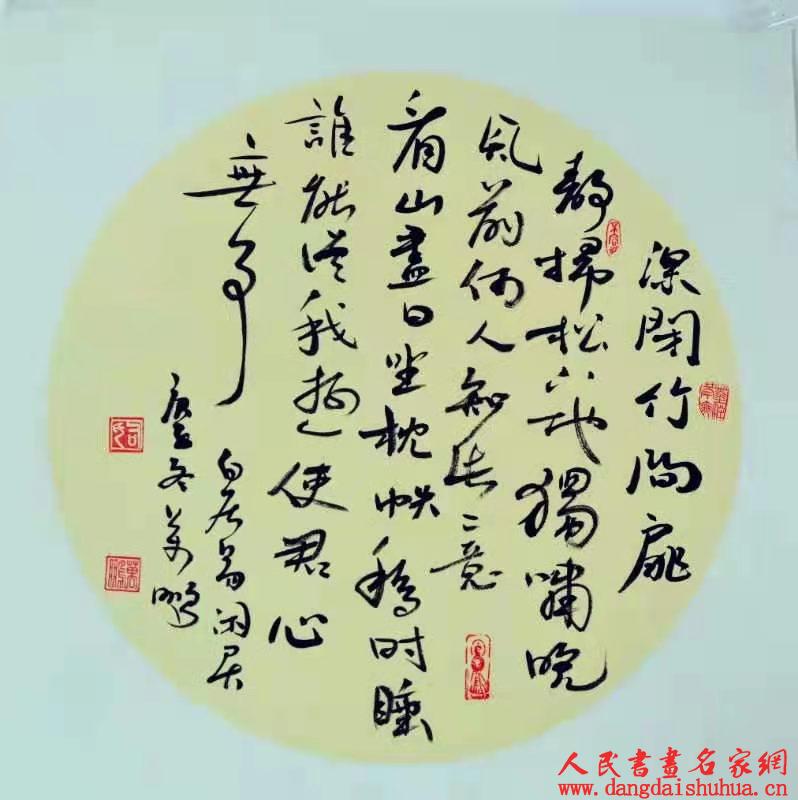 深閉竹间扉
靜掃松下地獨嘯晚
風前何人知此意
看山盡日坐枕帙移时睡
誰能從我遊使君心
無事
白居易闲居
冬万鹏
人民書畫名家網
www.dangdaishuhua.cn